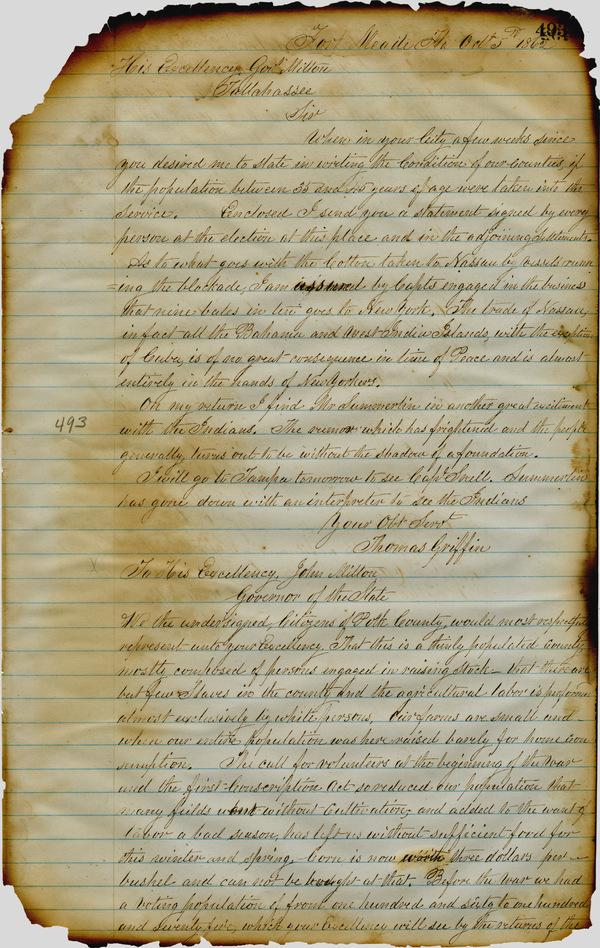 493
Fort Meade Fla Octr 5th 1862
His Excellency Govr Milton
Tallahassee
Sir
When in your City a few weeks since
you desired me to state in writing the Condition of our Counties, if
the population between 35 and 45 years of age were taken into the
Service. Enclosed I send you a statement signed by every
person at the election at this place and in the adjoining settlements.
As to what goes with the Cotton taken to Nassau by vessels runn
=ing the blockade, I am assured by Capts engaged in the business
that nine bales in ten goes to New York. The trade of Nassau,
in fact all the Bahama and West India Islands, with the exception
of Cuba, is of no great consequence in time of Peace and is almost
entirely in the hands of New Yorkers.
On my return I find Mr Summerlin in another great excitement
with the Indians. The rumor which has frightened and the people
generally, turns out to be without the shadow of a foundation.
493
I will go to Tampa tomorrow to see Capt Snell. Summerlin
has gone down with an interpreter to see the Indians
Your Obt Servt
Thomas Griffin
To His Excellency, John Milton,
Governor of the State
We the undersigned, Citizens of Polk County, would most respectfully
represent unto your Excellency, That this is a thinly populated county,
mostly composed of persons engaged in raising stock – that there are
but few slaves in the county and the agricultural labor is performed
almost exclusively by white persons, Our farms are small and
when our entire population was here raised barely for home con
sumption. The call for volunteers at the beginning of the war
and the first Conscription Act so reduced our population that
many fields went without cultivation, and added to the want of
labor a bad season, has left us without sufficient food for
this winter and spring, – Corn is now worth three dollars per
bushel and can not be bought at that. Before the war we had
a voting population of from one hundred and sixty to one hundred
and seventy five, which your Excellency will see by the returns of the